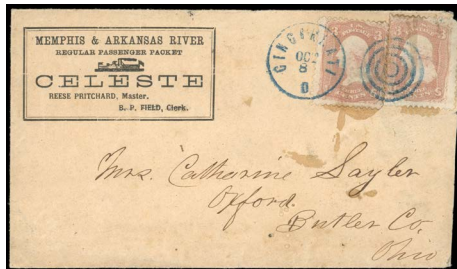 MEMPHIS & ARKANSAS RIVER
REGULAR PASSENGER PACKET
CELESTE
REESE PRITCHARD, Master.
B. P. FIELD, Clerk.
CINCINNATI
OCT
8
O
3
3
Mrs. Catharine Sayler
Oxford.
Butler Co,
Ohio